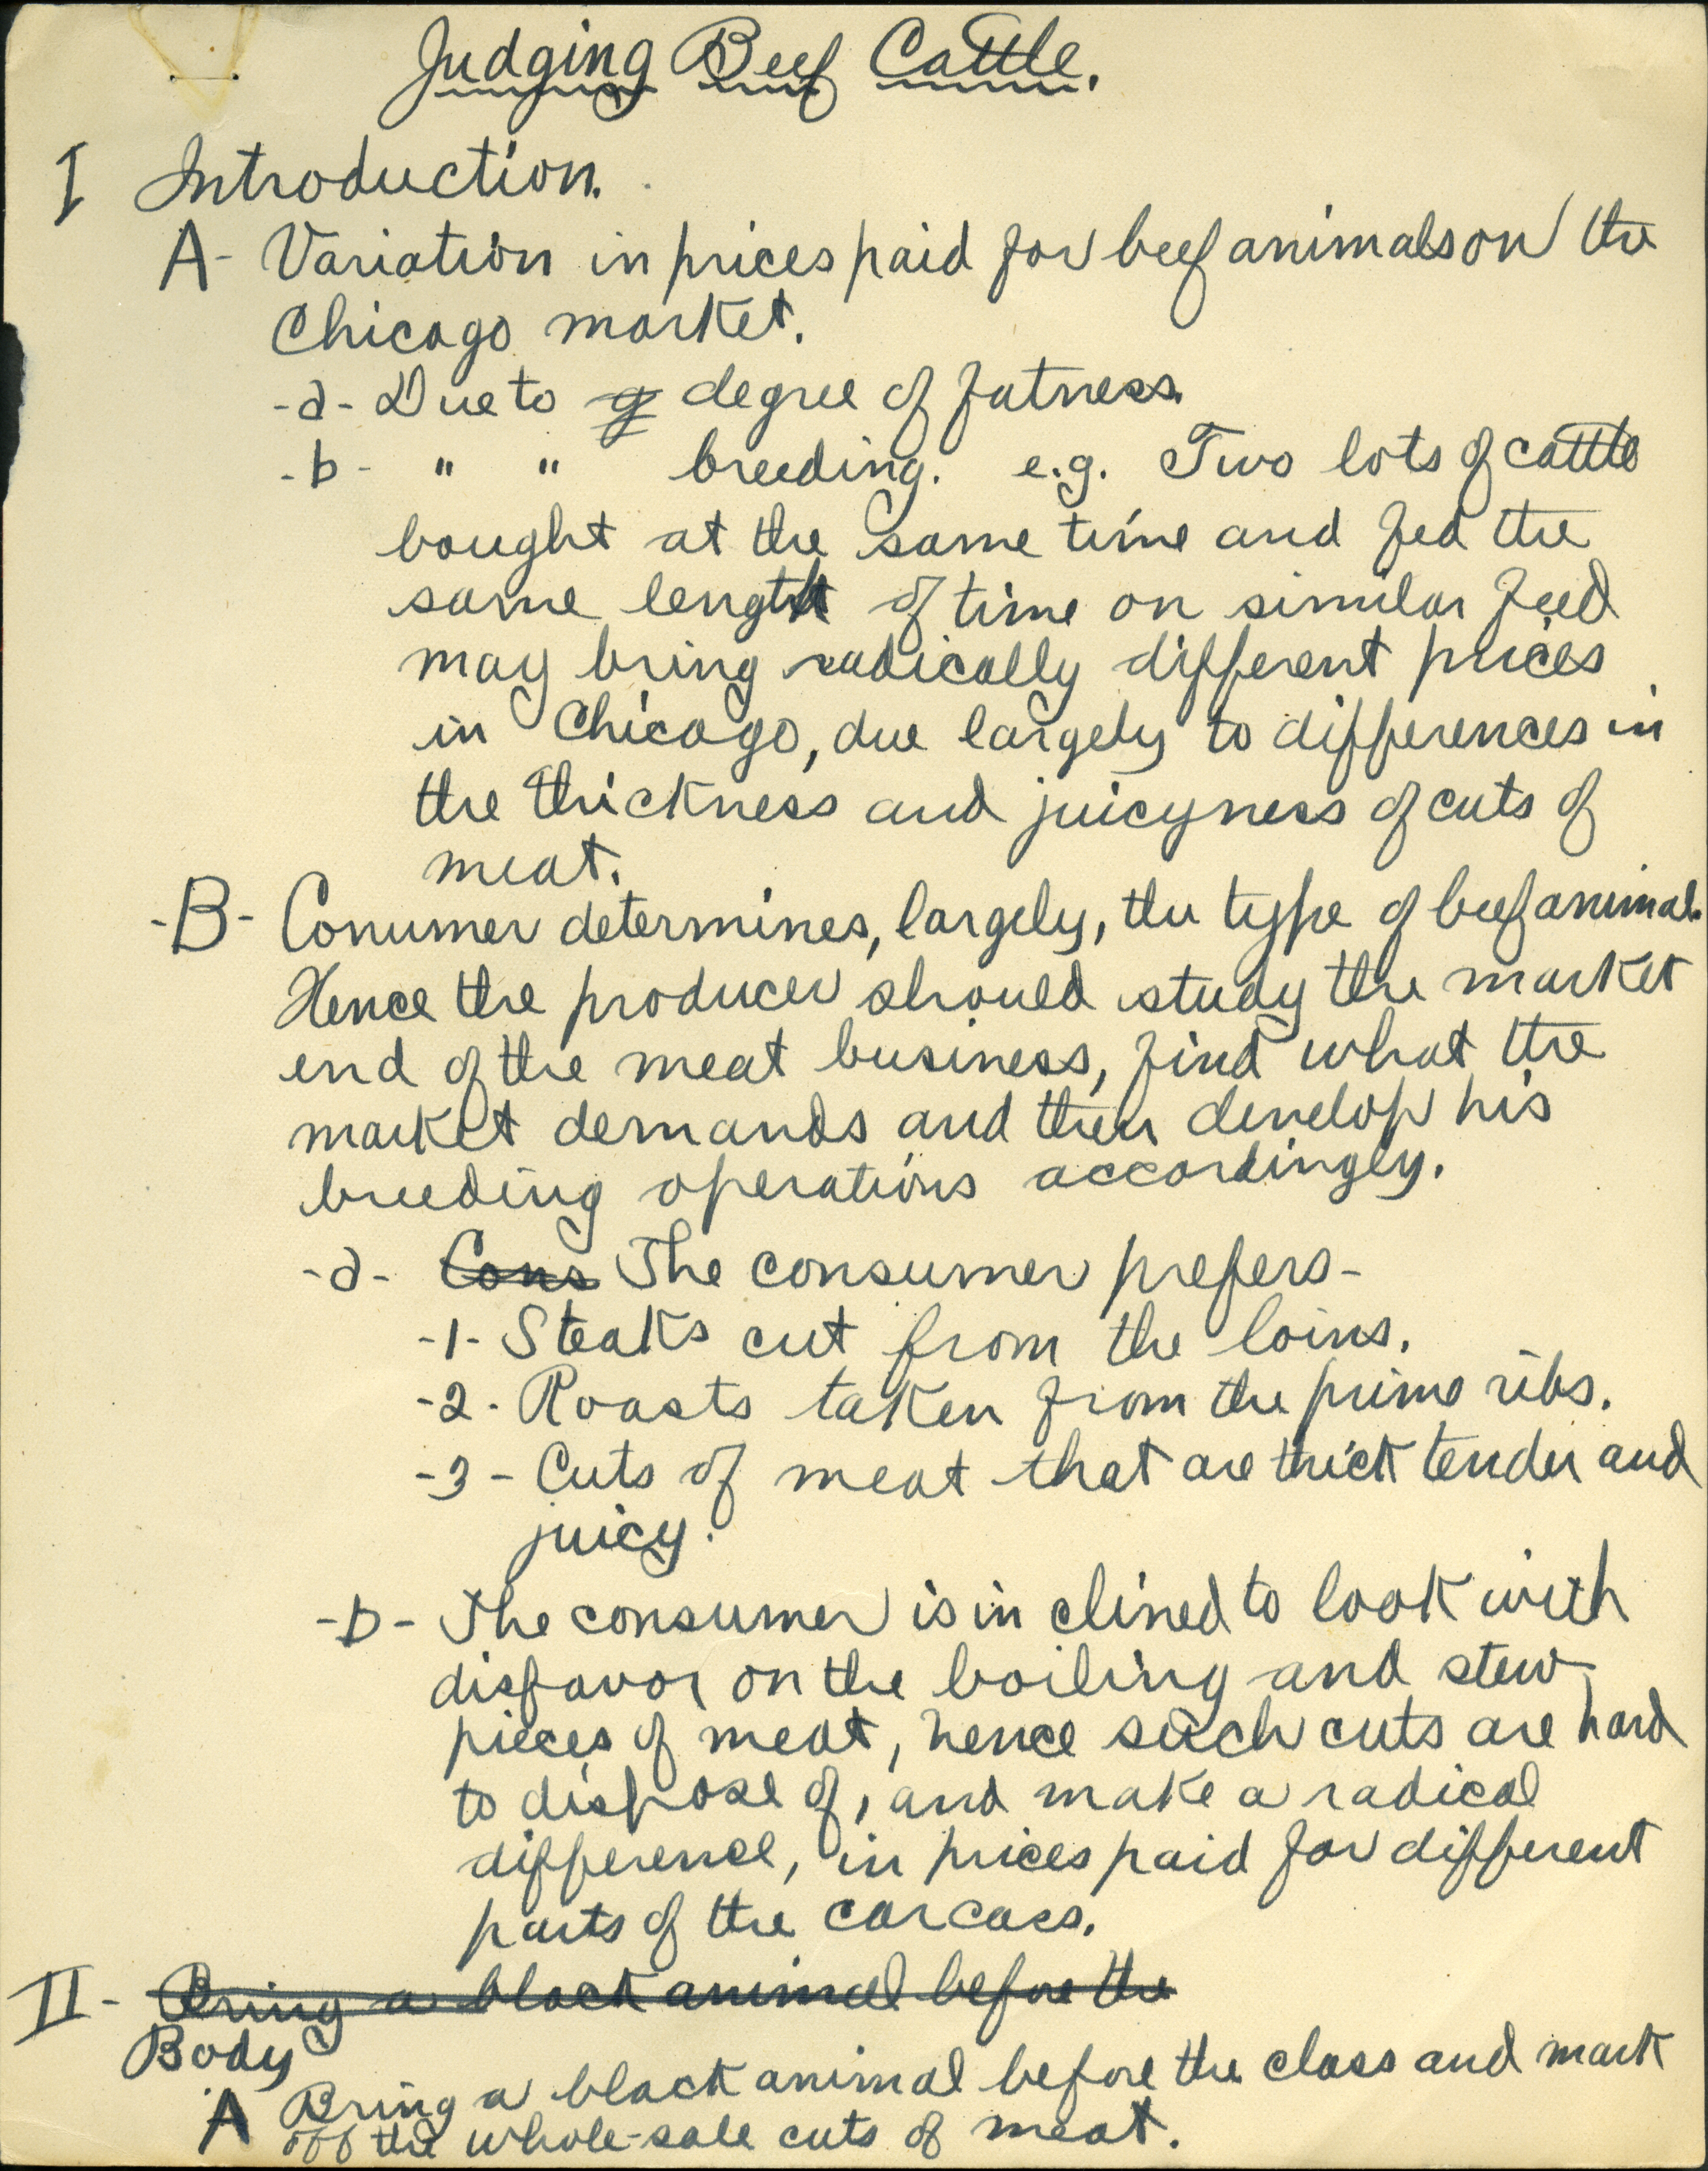 Judging Beef Cattle.
I Introduction.
A- Variation in prices paid for beef animals on the
Chicago market.
-a- Due to g degree of fatness.
-b- " " breeding. e.g. Two lots of cattle
bought at the same time and fed the
same length of time on similar feed
may bring radically different prices
in Chicago, due largely to differences in
the thickness and juicyness of cuts of
meat.
-B- Conumer determines, largely, the type of beef animal.
Hence the producer should study the market
end of the meat business, find what the
market demands and then develop his
breeding operations accordingly.
-a- Cons The consumer prefers-
-1- Steaks cut from the loins.
-2- Roasts taken from the prime ribs.
-3- Cuts of meat that are thick tender and
juicy.
-b- The consumer is in clined to look with
disfavor on the boiling and stew
pieces of meat, hence such cuts are hard
to dispose of, and make a radical
difference, in prices paid for different
parts of the carcass.
II- Bring a black animal before the
Body
A Bring a black animal before the class and mark
off the whole-sale cuts of meat.